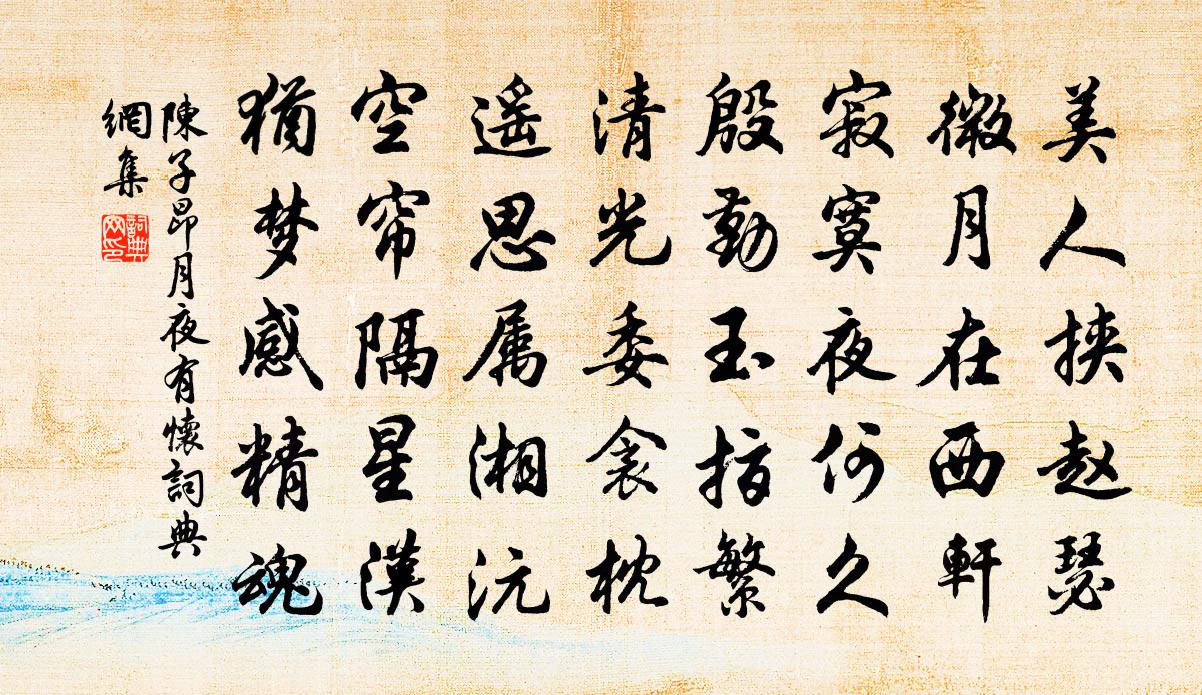 美人挾赵瑟
微月在西軒
寂寞夜何久
殷勤玉指繁
清光委衾枕
遥思属湘沅
空帘隔星漢
猶梦感精魂
陳子昂月夜有懷詞典
網集
詞典
网印